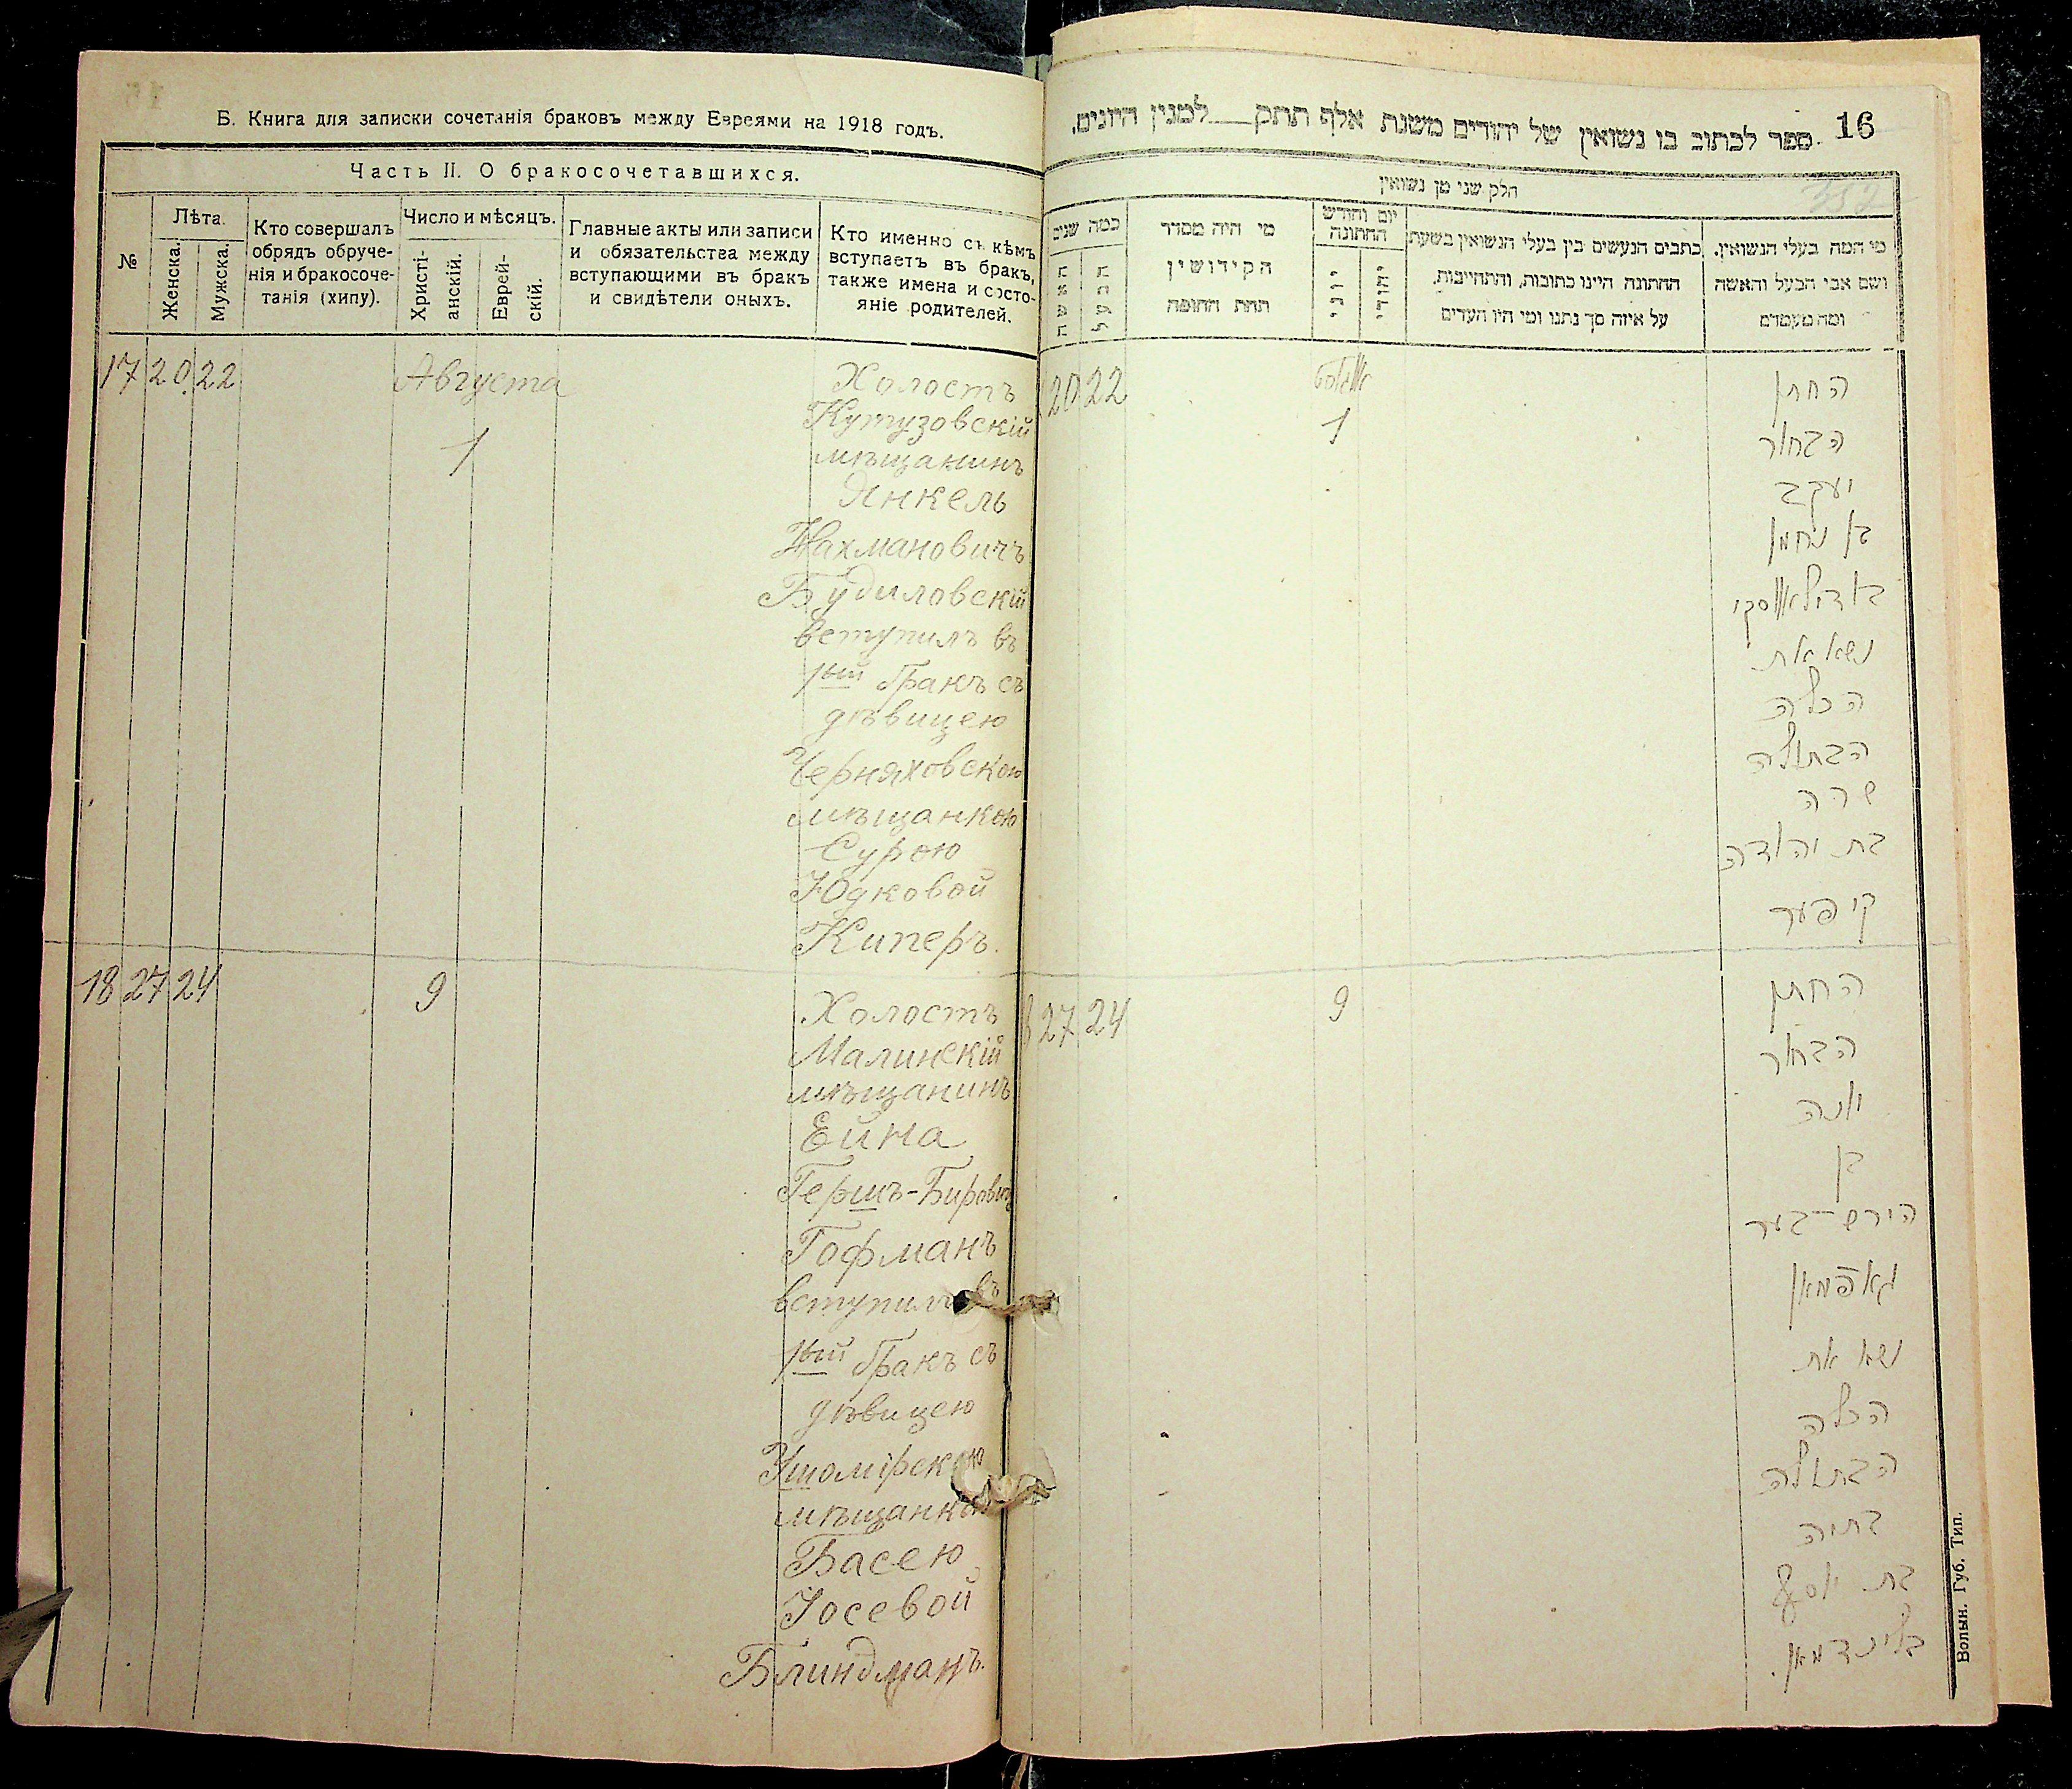 Б. Книга для записки сочетанія браковъ между Евреями на 1918 годъ.
Часть II. О бракосочетавшихся.
№
Лѣта.
Женска.
Мужска.
Кто совершалъ
обрядъ обруче-
нія и бракосоче-
танія (хипу).
Число и мѣсяцъ.
Христі-
анскій.
Еврей-
скій.
Главные акты или записи
и обязательства между
вступающими въ бракъ
и свидѣтели оныхъ.
Кто именно съ кѣмъ
вступаетъ въ бракъ,
также имена и состо-
яніе родителей.
17 20 22 Августа
1
Холостъ
Кутузовскій
мѣщанинъ
Янкель
Нахмановичъ
Будиловскій
вступилъ въ
1ый бракъ съ
дѣвицею
Черняховскою
мѣщанкою
Сурою
Юдковой
Киперъ.
18 27 24 9
Холостъ
Малинскій
мѣщанинъ
Ейна
Гершъ-Бирович
Гофманъ
вступилъ въ
1ый бракъ съ
дѣвицею
Ушомірскою
мѣщанкою
Басею
Іосевой
Блиндманъ.
16
ספר לכתוב בו נשואין של יהודים משנת אלף תתק __ למנין היונים.
חלק שני מן נשואין
מי המה בעלי הנשואין.
ושם אבי הבעל והאשה
ומה מעמדם
כתבים הנעשים בין בעלי הנשואין בשעת
החתונה היינו כתובות, והתחייבות,
על איזה סך נתנו ומי היו העדים
יום וחודש
החתונה
יהודי
יוני
מי היה מסדר
הקידושין
תחת החופה
כמה שנים
הבעל
האשה
20 22 אווגוסט
1
החתן
הבחור
יעקב
בן נחמן
באדילאווסקי
נשא את
הכלה
הבתולה
שרה
בת יהודה
קיפער
27 24 9
החתן
הבחור
יונה
בן
הירש-בער
גאפמאן
נשא את
הכלה
הבתולה
בתיה
בת יוסף
בלינדמאן.
Волын. Губ. Тип.